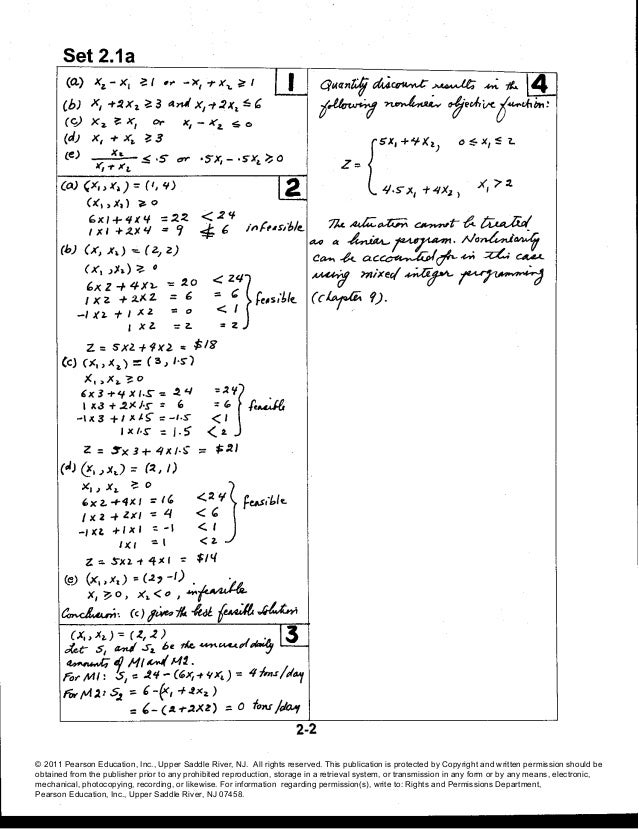 Set 2.1a
1
(a) x₂ - x₁ ≥ 1 or -x₁ + x₂ ≥ 1
(b) x₁ + 2x₂ ≥ 3 and x₁ + 2x₂ ≤ 6
(c) x₂ ≥ x₁ or x₁ - x₂ ≤ 0
(d) x₁ + x₂ ≥ 3
(e) x₂/(x₁ + x₂) ≤ .5 or .5x₁ - .5x₂ ≥ 0
2
(a) (x₁, x₂) = (1, 4)
(x₁, x₂) ≥ 0
6x1 + 4x4 = 22 < 24
1x1 + 2x4 = 9 ≰ 6 infeasible
(b) (x₁, x₂) = (2, 2)
(x₁, x₂) ≥ 0
6x2 + 4x2 = 20 < 24
1x2 + 2x2 = 6 = 6
-1x2 + 1x2 = 0 < 1
1x2 = 2 = 2
feasible
Z = 5x2 + 4x2 = $18
(c) (x₁, x₂) = (3, 1.5)
x₁, x₂ ≥ 0
6x3 + 4x1.5 = 24 = 24
1x3 + 2x1.5 = 6 = 6
-1x3 + 1x1.5 = -1.5 < 1
1x1.5 = 1.5 < 2
feasible
Z = 5x3 + 4x1.5 = $21
(d) (x₁, x₂) = (2, 1)
x₁, x₂ ≥ 0
6x2 + 4x1 = 16 < 24
1x2 + 2x1 = 4 < 6
-1x2 + 1x1 = -1 < 1
1x1 = 1 < 2
feasible
Z = 5x2 + 4x1 = $14
(e) (x₁, x₂) = (2, -1)
x₁ ≥ 0, x₂ < 0, infeasible
Conclusion: (c) gives the best feasible solution
3
(x₁, x₂) = (2, 2)
Let S₁ and S₂ be the unused daily
amounts of M1 and M2.
For M1: S₁ = 24 - (6x₁ + 4x₂) = 4 tons/day
For M2: S₂ = 6 - (x₁ + 2x₂)
= 6 - (2 + 2x2) = 0 tons/day
4
Quantity discount results in the
following nonlinear objective function:
Z = { 5x₁ + 4x₂, 0 ≤ x₁ ≤ 2
4.5x₁ + 4x₂, x₁ > 2
The situation cannot be treated
as a linear program. Nonlinearity
can be accounted for in this case
using mixed integer programming
(chapter 9).
2-2
© 2011 Pearson Education, Inc., Upper Saddle River, NJ. All rights reserved. This publication is protected by Copyright and written permission should be
obtained from the publisher prior to any prohibited reproduction, storage in a retrieval system, or transmission in any form or by any means, electronic,
mechanical, photocopying, recording, or likewise. For information regarding permission(s), write to: Rights and Permissions Department,
Pearson Education, Inc., Upper Saddle River, NJ 07458.